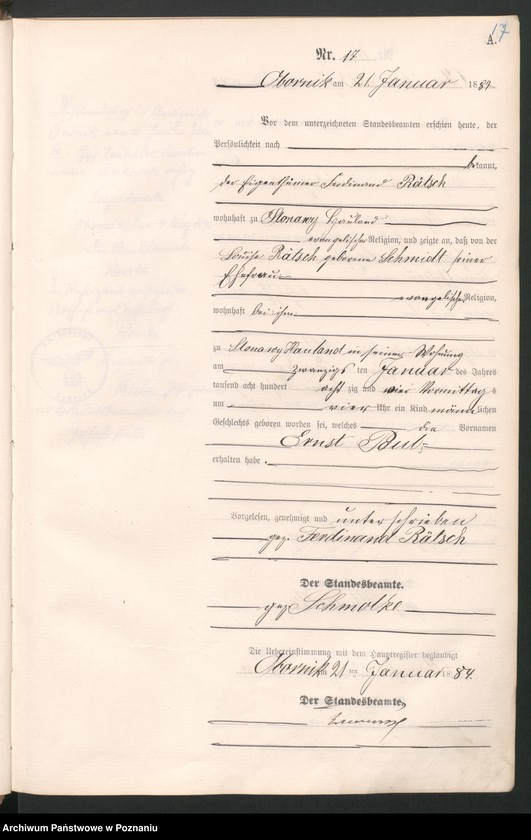 17
A.
Nr. 17
Obornik am 21. Januar 1884
Vor dem unterzeichneten Standesbeamten erschien heute, der
Persönlichkeit nach
bekannt,
der Eigenthümer Ferdinand Rätsch
wohnhaft zu Slonawy Hauland
evangelischer Religion, und zeigte an, daß von der
Louise Rätsch geborene Schmidt seiner
Ehefrau
evangelischer Religion,
wohnhaft bei ihm
zu Slonawy Hauland in seiner Wohnung
am zwanzigs ten Januar des Jahres
tausend acht hundert acht zig und vier Vormittag s
um vier Uhr ein Kind männlichen
Geschlechts geboren worden sei, welches die Vornamen
Ernst Paul
erhalten habe.
Vorgelesen, genehmigt und unterschrieben
gez. Ferdinand Rätsch
Der Standesbeamte.
gez Schmolke
Die Uebereinstimmung mit dem Hauptregister beglaubigt
Obornik am 21 ten Januar 1884.
Der Standesbeamte.
Archiwum Państwowe w Poznaniu